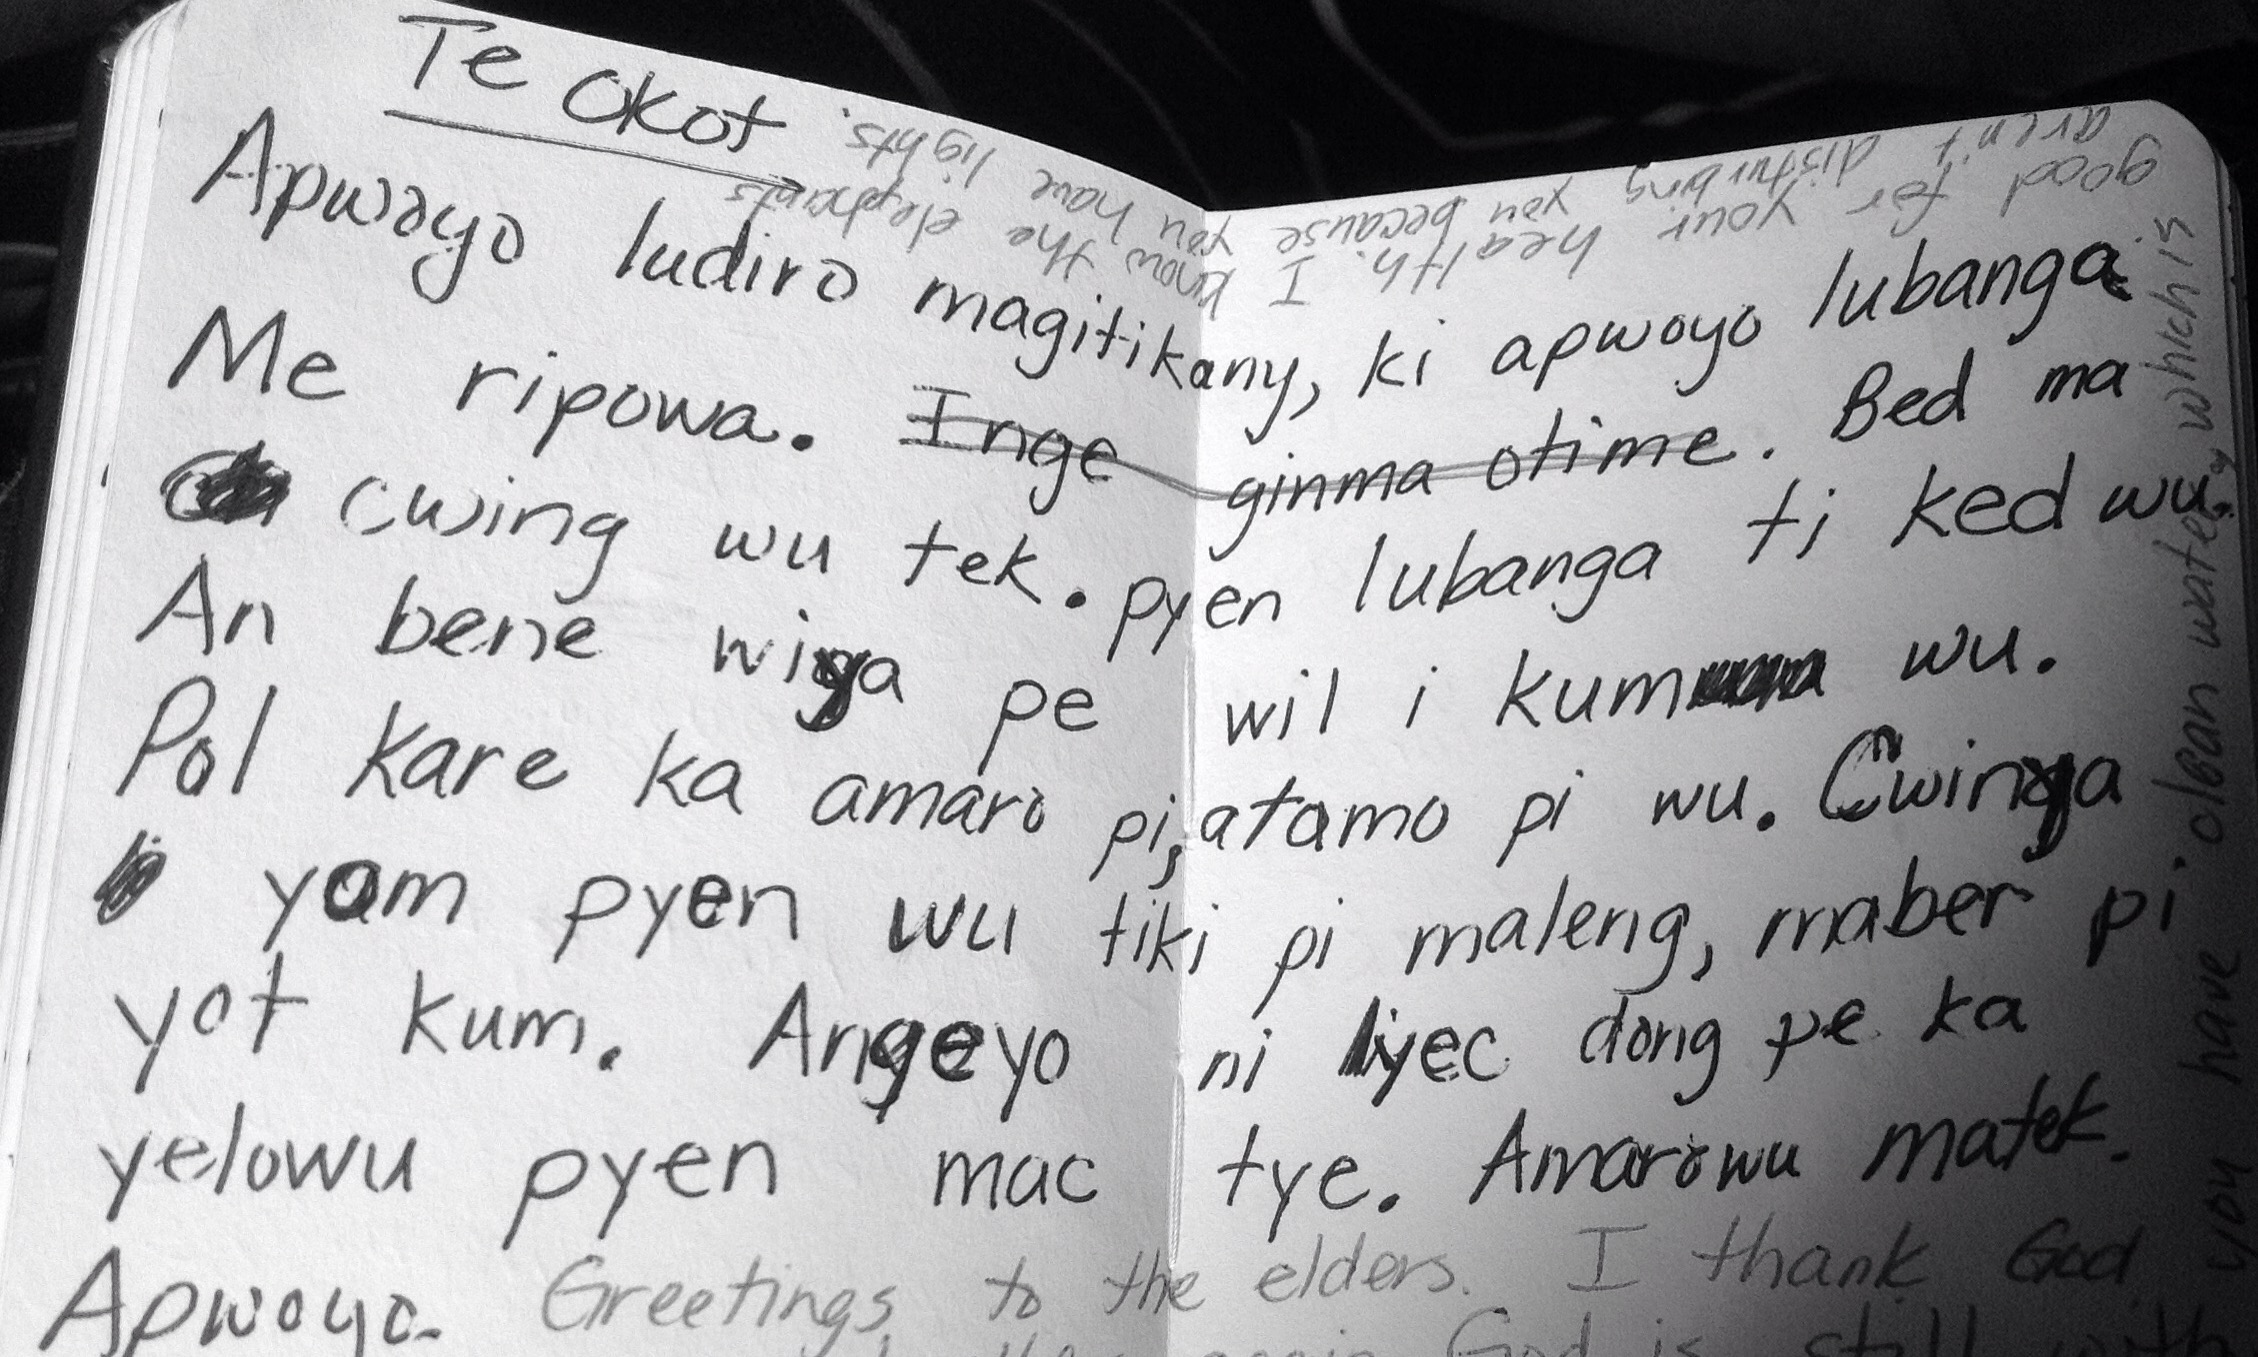 Te Okot
Apwoyo ludiro magitikany, ki apwoyo lubanga
Me ripowa. Inge ginma otime. Bed ma
cwing wu tek. pyen lubanga ti ked wu.
An bene wiya pe wil i kum wu.
Pol kare ka amaro pi, atamo pi wu. Cwinya
yom pyen wu tiki pi maleng, maber pi
yot kum. Angeyo ni liyec dong pe ka
yelowu pyen mac tye. Amarowu matek.
Apwoyo. Greetings to the elders. I thank God
again God is still with
you have clean water, which is
good for your health. I know the elephants
aren't disturbing you because you have lights.